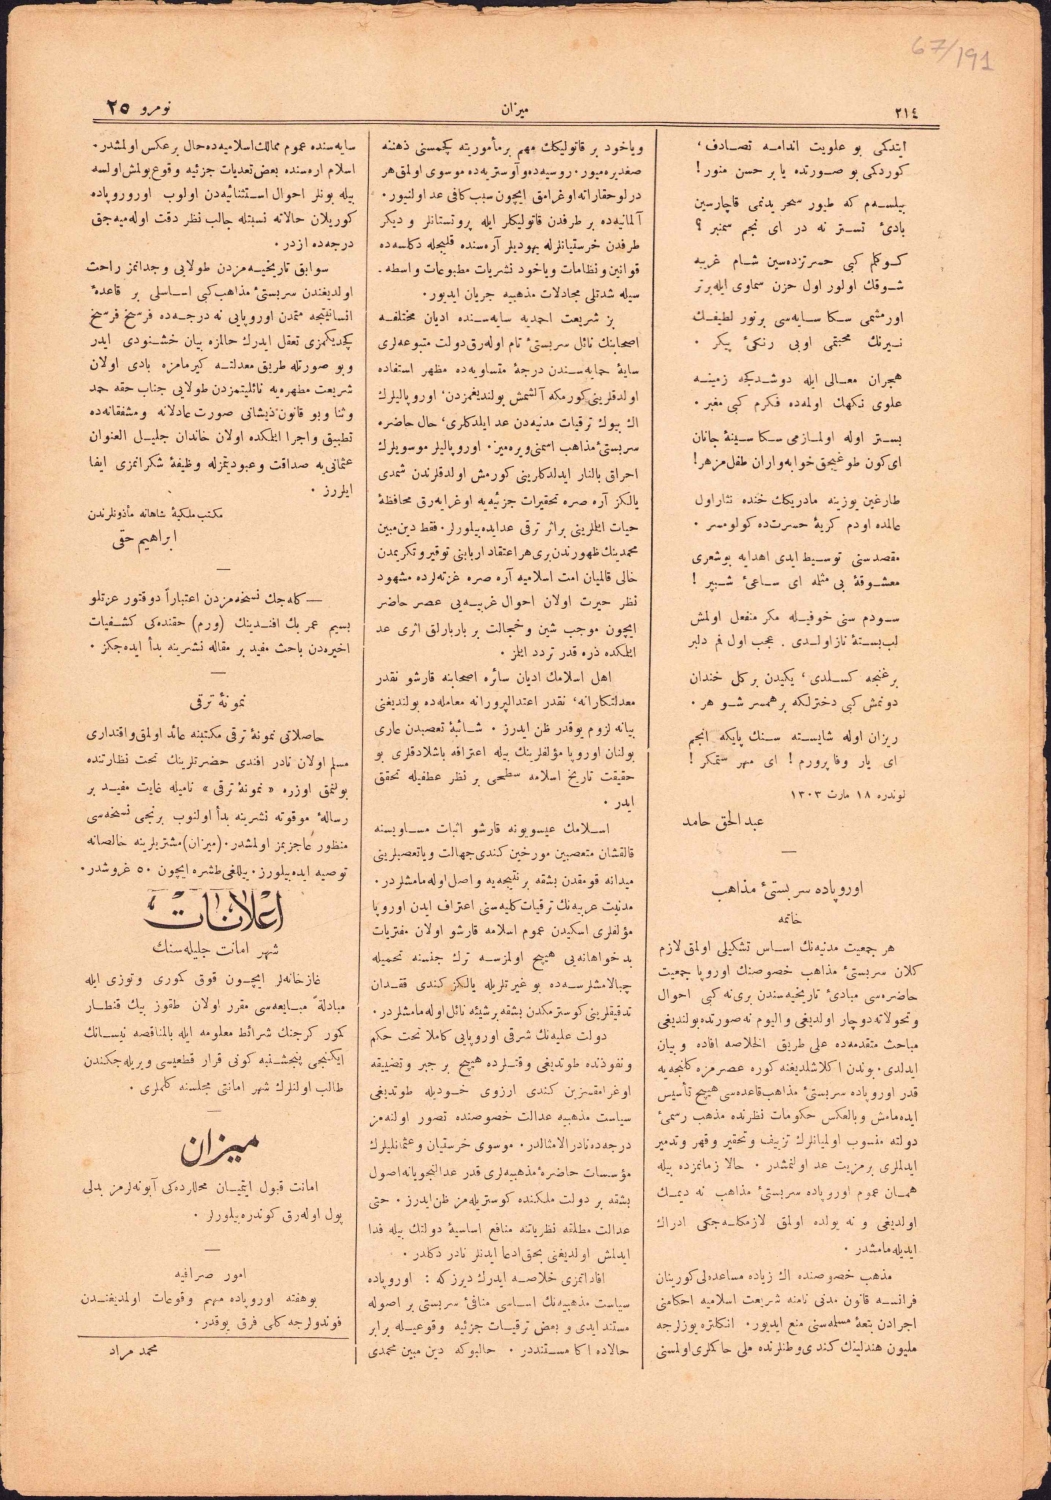 67/191
٢١٤
ميزان
نومرو ٢٥
ايتدكى بو علويت اندامه تصادف ،
كوردكى بو صورتده يا بر حسن منور !
بيلسه م كه طيور سحر يدنمى قاچارسين
بادئ تستر نه در اى نجم سمنبر ؟
كوكلم كبى حسرتزده سين شام غريبه
شوقك اولور اول حزن سماوى ايله برتر
اورمشمى سكا سايه سى برنور لطيفك
نيرنك محبتمى اوبى رنكئ پيكر .
هجران معالى ايله دوشدكجه زمينه
علوى نكهك اولمه ده فكرم كبى مغبر .
بستر اوله اولمازمى سكا سينۀ جانان
اى كون طوغيجق خوابه واران طفل مزهر !
طارغين يوزينه مادريكك خنده نثار اول
عالمده اودم كريۀ حسرت ده كولومسر .
مقصد سنى توسيط ايدى اهدايه بو شعرى
معشوقۀ بى مثله اى ساعئ شبپر !
سودم سنى خوفيله مكر منفعل اولمش
لب بستۀ ناز اولدى . عجب اول فم دلبر
بر غنجه كسلدى ، يكيدن بر كل خندان
دونمش كبى دخترلكه بر همسر شو هر .
ريزان اوله شايسته سنك پايكه انجم
اى يار وفا پرورم ! اى مهر ستمكر !
لوندره ١٨ مارت ١٣٠٣
عبد الحق حامد
—
اوروپاده سربستئ مذاهب
خاتمه
هر جمعيت مدنيه نك اساس تشكيلى اولمق لازم
كلان سربستئ مذاهب خصوصنك اوروپا جمعيت
حاضره سى مبادئ تاريخيه سندن برى نه كبى احوال
وتحولاته دوچار اولديغى واليوم نه صورتده بولنديغى
مباحث متقدمه ده على طريق الخلاصه افاده و بيان
ايدلدى . بوندن اكلاشلديغنه كوره عصرمزه كلنجه يه
قدر اوروپاده سربستئ مذاهب قاعده سى هيچ تأسيس
ايده مامش وبالعكس حكومات نظرنده مذهب رسمئ
دولته منسوب اولميانلرك تزييف وتحقير وقهر وتدمير
ايدلملرى بر مزيت عد اولنمشدر . حالا زمانمزده بيله
همان عموم اوروپاده سربستئ مذاهب نه ديمك
اولديغى و نه يولده اولمق لازمكله جكى ادراك
ايديله مامشدر .
مذهب خصوصنده اك زياده مساعده لى كورينان
فرانسه قانون مدنى نامنه شريعت اسلاميه احكامنى
اجرادن تبعۀ مسلمه سنى منع ايديور . انكلتره يوزلرجه
مليون هندلينك كندى وطنلرنده ملى حاكملرى اولمسنى
وياخود بر قاتوليكك مهم بر مأموريته كچمسنى ذهننه
صغديره ميور . روسيه ده و آوستريه ده موسوى اولمق هر
درلو حقاراته اوغرامق ايچون سبب كافى عد اولنيور .
آلمانيه ده بر طرفدن قاتوليكلر ايله پروتستانلر و ديكر
طرفدن خرستيانلرله يهوديلر آره سنده قليجله دكلسه ده
قوانين و نظامات وياخود نشريات مطبوعات واسطه ـ
سيله شدتلى مجادلات مذهبيه جريان ايديور .
بز شريعت احمديه سايه سنده اديان مختلفه
اصحابنك نائل سربستئ تام اوله رق دولت متبوعه لرى
سايۀ حمايه سندن درجۀ متساويه ده مظهر استفاده
اولدقلرينى كورمكه آلشمش بولنديغمزدن ، اوروپاليلرك
اك بيوك ترقيات مدنيه دن عد ايلدكلرى ، حال حاضره
سربستئ مذاهب اسمنى ويره ميز . اوروپاليلر موسويلرك
احراق بالنار ايدلدكلرينى كورمش اولدقلرندن شمدى
يالكز آره صره تحقيرات جزئيه يه اوغرايه رق محافظۀ
حيات ايتملرينى بر اثر ترقى عد ايده بيلورلر . فقط دين مبين
محمدينك ظهورندن برى هر اعتقاد اربابنى توقير و تكريمدن
خالى قالميان امت اسلاميه آره صره غزته لرده مشهود
نظر حيرت اولان احوال غريبه يى عصر حاضر
ايچون موجب شين وخجالت بر باربارلق اثرى عد
ايتمكده ذره قدر تردد ايتمز .
اهل اسلامك اديان سائره اصحابنه قارشو نقدر
معدلتكارانه ، نقدر اعتدالپرورانه معامله ده بولنديغنى
بيانه لزوم يوقدر ظن ايدرز . شائبۀ تعصبدن عارى
بولنان اوروپا مؤلفلرينك بيله اعترافه باشلادقلرى بو
حقيقت تاريخ اسلامه سطحى بر نظر عطفيله تحقق
ايدر .
اسلامك عيسويونه قارشو اثبات مساويسنه
قالقشان متعصبين مورخين كندى جهالت وياتعصبلرينى
ميدانه قومقدن بشقه بر نتيجه يه واصل اوله مامشلردر .
مدنيت عربيه نك ترقيات كليه سنى اعتراف ايدن اوروپا
مؤلفلرى اسكيدن عموم اسلامه قارشو اولان مفتريات
بدخواهانه يى هيچ اولمزسه ترك جنسنه تحميله
چبالامشلرسه ده بو غيرتلريله يالكز كندى فقدان
تدقيقلرينى كوسترمكدن بشقه بر شيئه نائل اوله مامشلردر .
دولت عليه نك شرقى اوروپايى كاملا تحت حكم
و نفوذنده طوتديغى وقتلرده هيچ بر جبر وتضييقه
اوغرامقسزين كندى ارزوى خوديله طوتديغى
سياست مذهبيه عدالت خصوصنده تصور اولنه مز
درجه ده نادر الامثالدر . موسوى خرستيان وعثمانليلرك
مؤسسات حاضرۀ مذهبيه لرى قدر عدالتجويانه اصول
بشقه بر دولت ملكنده كوستريله مز ظن ايدرز . حتى
عدالت مطلقه نظرياتنه منافع اساسيۀ دولتك بيله فدا
ايدلمش اولديغنى بحق ادعا ايدنلر نادر دكلدر .
افاداتمزى خلاصه ايدرك ديرزكه : اوروپاده
سياست مذهبيه نك اساسى منافئ سربستى بر اصوله
مستند ايدى و بعض ترقيات جزئيه وقوعيله برابر
حالاده اكا مستنددر . حالبوكه دين مبين محمدى
سايه سنده عموم ممالك اسلاميه ده حال بر عكس اولمشدر .
اسلام اره سنده بعض تعديات جزئيه وقوع بولمش اولسه
بيله بونلر احوال استثنائيه دن اولوب اوروپاده
كوريلان حالاته نسبتله جالب نظر دقت اوله ميه جق
درجه ده ازدر .
سوابق تاريخيه مزدن طولايى وجدانمز راحت
اولديغندن سربستئ مذاهب كبى اساسلى بر قاعدۀ
انسانيتجه متمدن اوروپايى نه درجه ده فرسخ فرسخ
كچديكمزى تعقل ايدرك حالمزه بيان خشنودى ايدر
وبو صورتله طريق معدلته كيرمامزه بادى اولان
شريعت مطهره يه نائليتمزدن طولايى جناب حقه حمد
وثنا وبو قانون ذيشانى صورت عادلانه ومشفقانه ده
تطبيق واجرا ايتمكده اولان خاندان جليل العنوان
عثمانى يه صداقت وعبوديتمزله وظيفۀ شكرانمزى ايفا
ايلرز .
مكتب ملكيۀ شاهانه مأذونلرندن
ابراهيم حقى
—
— كله جك نسخه مزدن اعتباراً دوقتور عزتلو
بسيم عمر بك افندينك (ورم) حقنده كى كشفيات
اخيره دن باحث مفيد بر مقاله نشرينه بدأ ايده جكز .
—
نمونۀ ترقى
حاصلاتى نمونۀ ترقى مكتبنه عائد اولمق واقتدارى
مسلم اولان نادر افندى حضرتلرينك تحت نظارتنده
بولنمق اوزره « نمونۀ ترقى » ناميله غايت مفيد بر
رسالۀ موقوته نشرينه بدأ اولنوب برنجى نسخه سى
منظور عاجزيمز اولمشدر . (ميزان) مشتريلرينه خالصانه
توصيه ايده بيلورز . ييللغى طشره ايچون ٥٠ غروشدر .
اعلانات
شهر امانت جليله سنك
غازخانه لر ايچون قوق كمورى وتوزى ايله
مبادلةً مبايعه سى مقرر اولان طقوز بيك قنطار
كمور كرجنك شرائط معلومه ايله بالمناقصه نيسانك
ايكنجى پنجشنبه كونى قرار قطعيسى ويريله جكندن
طالب اولنلرك شهر امانتى مجلسنه كلملرى .
—
ميزان
امانت قبول ايتميان محللرده كى آبونه لرمز بدلى
پول اوله رق كوندره بيلورلر .
—
امور صرافيه
بو هفته اوروپاده مهم وقوعات اولمديغندن
قوندولرجه كلى فرق يوقدر .
محمد مراد